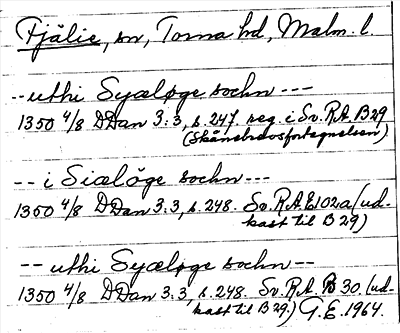 Fjälie, sn, Torna hd, Malm. l.
-- uthi Syæløge sochn ---
1350 4/8 DDan 3:3, s. 247. reg. i Sv. R.A. B 29
(Skånebrevsfortegnelsen)
-- i Siælöge sochn ---
1350 4/8 DDan 3:3, s. 248. Sv. R.A. E 102a (ud-
kast til B 29)
-- uthi Syæløge sochn --
1350 4/8 DDan 3:3, s. 248. Sv. R.A. B 30. (ud-
kast til B 29.) G.E. 1964.